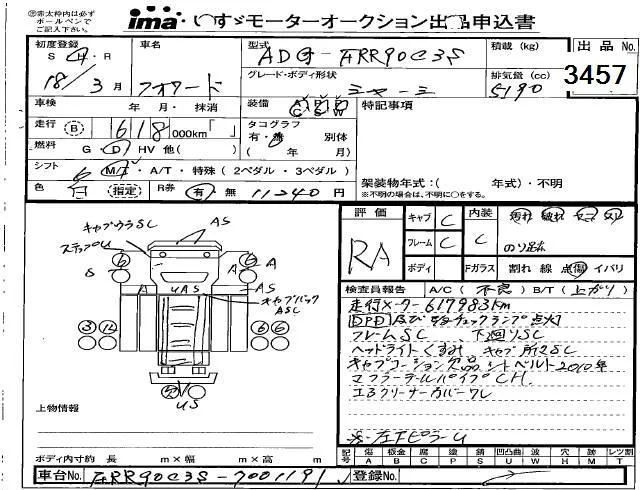 ㊟赤太枠内は必ず
ボールペンで
ご記入下さい。
ima いすゞモーターオークション出品申込書
初度登録 車名 型式 ADG-FRR90C3S 積載 (kg) 出品 No.
S・H・R 18/3月 フォワード グレード・ボディ形状 排気量 (cc) 3457
5190
車検 年・月・抹消 装備 AC PS PW 特記事項
走行 B 618 000km「 」 タコグラフ 有・無 別体
燃料 G・D・HV 他( ) ( 年 月)
シフト 6 M/T・A/T・特殊 (2ペダル・3ペダル) 架装物年式:( 年式)・不明
色 白 指定 R券 有 無 11240円 ※不明の場合は、不明に○をする。
評価 キャブ C 内装 汚れ 破れ
RA フレーム C C のり跡
ボディ Fガラス 割れ 線 点傷 イバリ
キャブウラSC AS
ステップU
6 6 A A
S A AS
UAS
キャブバック
ASC
3 12 6 6
US
検査員報告 A/C ( 不良 ) B/T ( 上がり )
走行メーター617983km
DPD及びチェックランプ点灯
フレームSC 下廻りSC
ヘッドライトくすみ キャブ所々SC
シートベルト2010年
マフラーテールパイプCH
エアクリーナーカバーワレ
※左FピラーU
上物情報
ボディ内寸約 長 m×幅 m×高 m
記号 傷 A 板金 B 腐 C 塗 P 錆 S 凹凸曲 U 波 W 穴 H 跡 M レツ割 T
車台No. FRR90C3S-7001191 登録No.